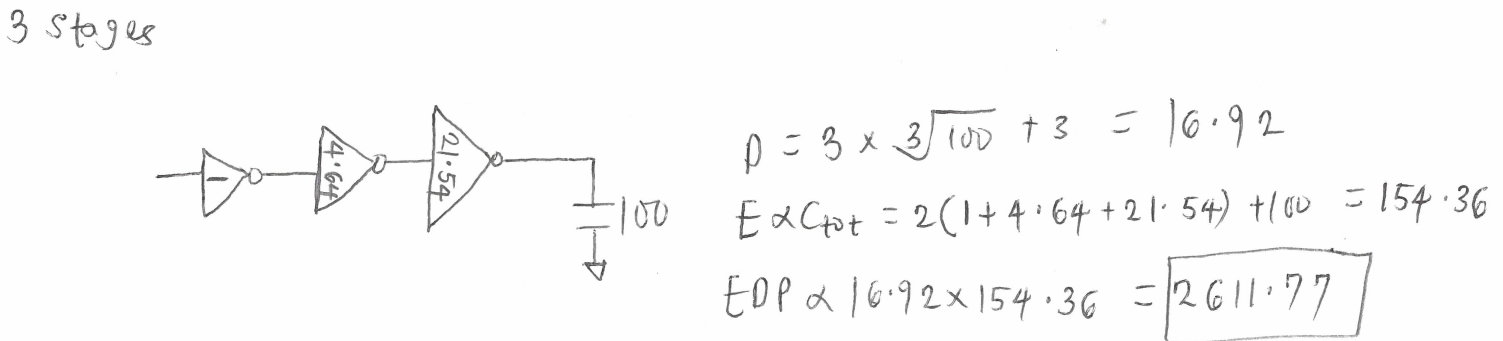 3 stages
1
4.64
21.54
100
D = 3 × ∛100 + 3 = 16.92
E α Ctot = 2(1+4.64+21.54) +100 = 154.36
EDP α 16.92×154.36 = 2611.77